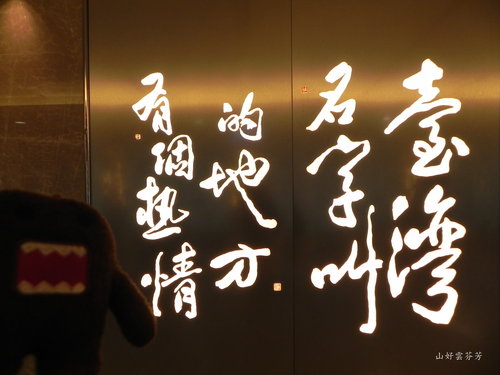 有個热情
的地方
名字叫
臺灣
山好雲芬芳